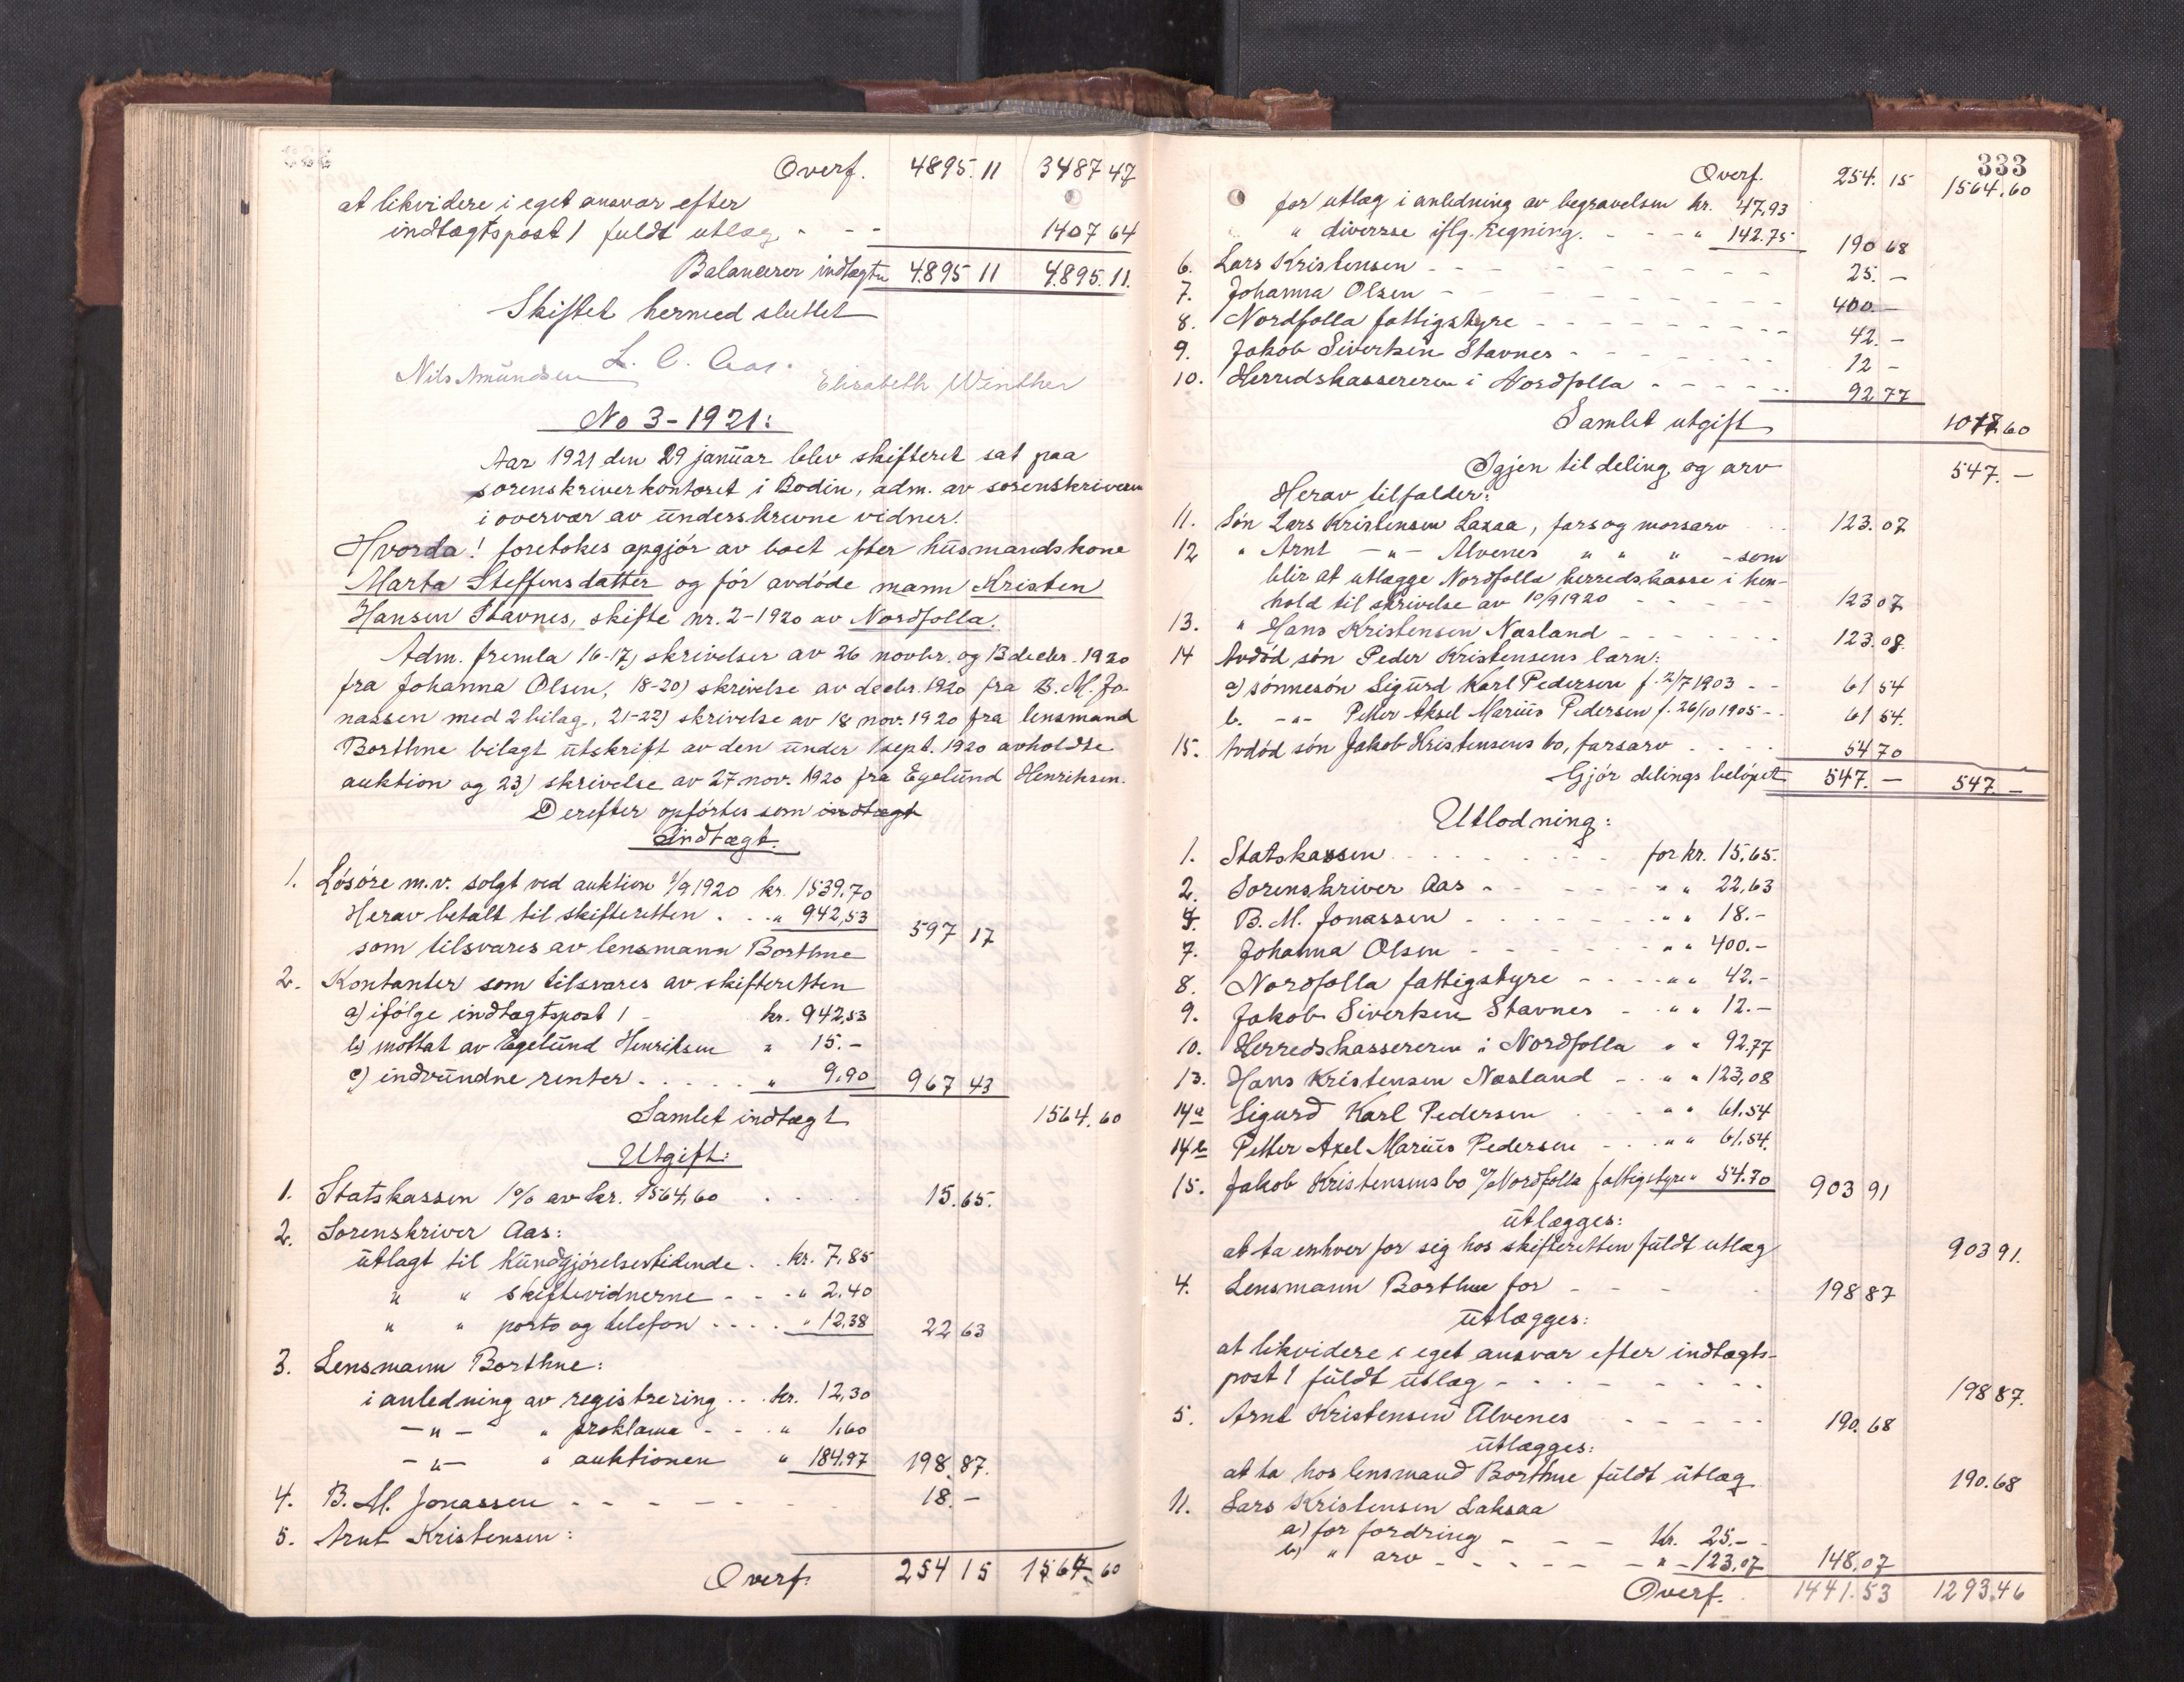 Overf. 4895.11 3487 47
at likvidere i eget ansvar efter
indtægtspost 1 fuldt utlæg - - - 1407 64
Balancerer indtægten 4895 11 4895.11.
Skiftet hermed sluttet
L. C. Aas.
Nils Amundsen Elisabeth Winther
No 3 - 1921:
Aar 1921 den 29 januar blev skifteret sat paa
sorenskriverkontoret i Bodin, adm. av sorenskriveren
i overvær av underskrevne vidner.
Hvorda! foretokes opgjør av boet efter husmandskone
Marta Steffensdatter og før avdøde mann Kristen
Hansen Stavnes, skifte nr. 2-1920 av Nordfolla.
Adm. fremla 16-17) skrivelser av 26 novbr. og 13 decbr. 1920
fra Johanna Olsen, 18-20) skrivelse av decbr. 1920 fra B. M. Jo-
nassen med 2 bilag, 21-22) skrivelse av 18 nov. 1920 fra lensmand
Borthne bilagt utskrift av den under 1 sept. 1920 avholdte
auktion og 23) skrivelse av 27 nov. 1920 fra Egelund Henriksen.
Derefter opførtes som indtægt
Indtægt.
1. Løsøre m.v. solgt ved auktion 1/9 1920 kr. 1539.70
Herav betalt til skifteretten . . " 942,53
som tilsvares av lensmann Borthne 597 17
2. Kontanter som tilsvares av skifteretten
a) ifølge indtægtspost 1 - kr. 942,53
b) mottat av Egelund Henriksen " 15.-
c) indvundne renter . . . . . " 9.90 967 43
Samlet indtægt 1564.60
Utgift:
1. Statskassen 1% av kr. 1564,60 . . . . 15.65.
2. Sorenskriver Aas:
utlagt til Kundgjørelsestidende . . kr. 7,85
" " skiftevidnerne - - - " 2.40
" " porto og telefon . . . . " 12,38 22 63
3. Lensmann Borthne:
i anledning av registrering . . . kr. 12,30
- " - " proklama - - . " 1,60
- " - " auktionen " 184,97 198.87.
4. B. M. Jonassen - - - - - - - 18.-
5. Arnt Kristensen:
Overf. 254 15 1564.60
333
Overf. 254.15 1564.60
for utlæg i anledning av begravelsen kr. 47,93
" diverse iflg. regning. - - - " 142.75 190 68
6. Lars Kristensen - - - - - - - - 25.-
7. Johanna Olsen - - - - - - - - 400.-
8. Nordfolla fattigstyre - - - - - - - - 42.-
9. Jakob Sivertsen Stavnes - - - - - - - 12 -
10. Herredskassereren i Nordfolla - - - - - - 92 77
Samlet utgift 1017.60
Igjen til deling og arv 547.-
Herav tilfalder:
11. Søn Lars Kristensen Laxaa, fars og morsarv . . 123.07
12 " Arnt - " - Alvenes " " " - som
blir at utlægge Nordfolla herredskasse i hen-
hold til skrivelse av 10/9 1920 - - - - - 123 07
13. " Hans Kristensen Næsland - - - - - - 123.08.
14 Avdød søn Peder Kristensens barn:
a) sønnesøn Sigurd Karl Pedersen f. 2/7 1903 - - 61 54
b. - " - Petter Aksel Marius Pedersen f. 26/10 1905 - - 61 54.
15. Avdød søn Jakob Kristensens bo, farsarv . . . . 54 70
Gjør delings beløpet 547.- 547.-
Utlodning:
1. Statskassen . . . . . . . . for kr. 15,65.
2. Sorenskriver Aas - - - - - " " 22,63
4. B. M. Jonassen - - - - - - - " " 18.-
7. Johanna Olsen - - - - - - " " 400.-
8. Nordfolla fattigstyre - - - - " " 42.-
9. Jakob Sivertsen Stavnes - . " " 12.-
10. Herredskassereren i Nordfolla " " 92.77
13. Hans Kristensen Næsland - . " " 123,08
14a Sigurd Karl Pedersen . . . " " 61.54
14b Petter Axel Marius Pedersen - . . " " 61.54.
15. Jakob Kristensens bo v/ Nordfolla fattigstyre " 54.70 903 91
utlægges:
at ta enhver for sig hos skifteretten fuldt utlæg 903 91.
4. Lensmann Borthne for - - - - . 198 87
utlægges:
at likvidere i eget ansvar efter indtægts-
post 1 fuldt utlæg - - - - - - - - 198 87.
5. Arnt Kristensen Alvenes - - - - - 190.68
utlægges:
at ta hos lensmand Borthne fuldt utlæg 190.68
11. Lars Kristensen Laksaa
a) for fordring - - - kr. 25.-
b) " arv - - - - - - " - 123.07 148.07
Overf. 1441.53 1293.46